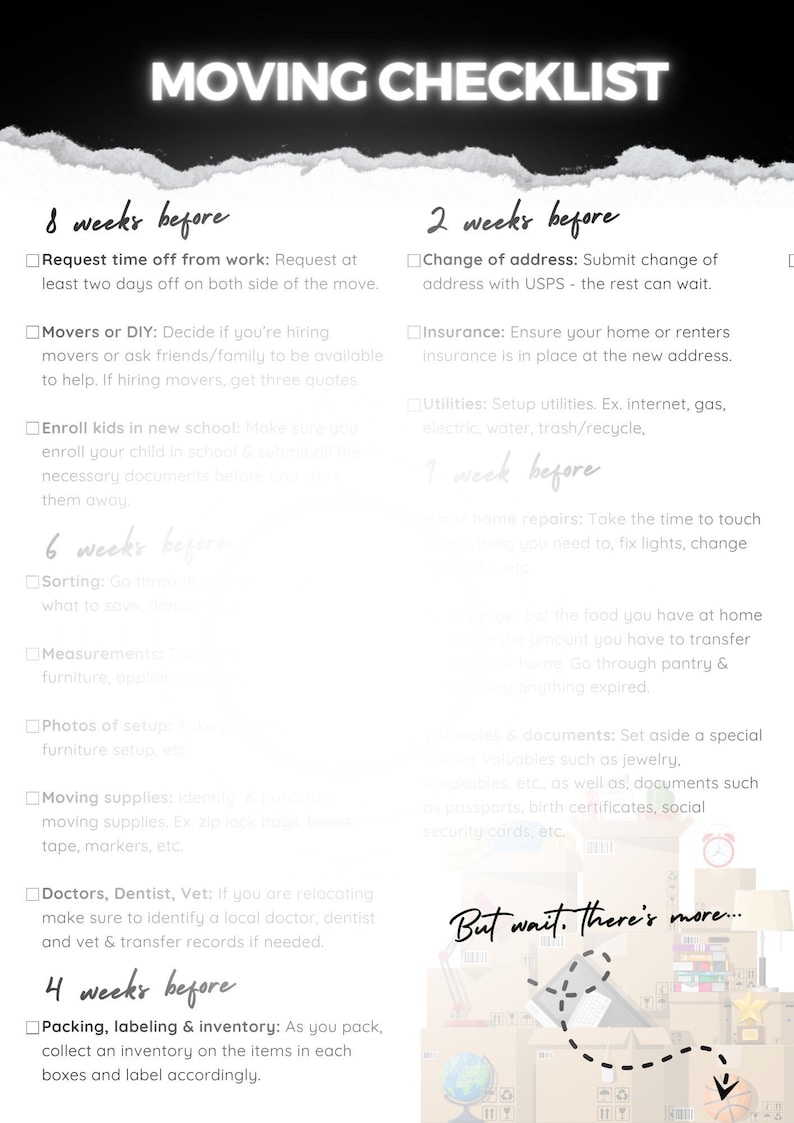 MOVING CHECKLIST
8 weeks before
Request time off from work: Request at
least two days off on both side of the move.
Movers or DIY: Decide if you're hiring
movers or ask friends/family to be available
to help. If hiring movers, get three quotes.
Enroll kids in new school: Make sure you
enroll your child in school & submit all the
necessary documents before you move
them away.
6 weeks before
Sorting: Go through
what to save, donate
Measurements:
furniture, appliances
Photos of setup: Take
furniture setup, etc
Moving supplies: Identify & purchase
moving supplies. Ex. zip lock bags, boxes,
tape, markers, etc.
Doctors, Dentist, Vet: If you are relocating
make sure to identify a local doctor, dentist
and vet & transfer records if needed.
4 weeks before
Packing, labeling & inventory: As you pack,
collect an inventory on the items in each
boxes and label accordingly.
2 weeks before
Change of address: Submit change of
address with USPS - the rest can wait.
Insurance: Ensure your home or renters
insurance is in place at the new address.
Utilities: Setup utilities. Ex. internet, gas,
electric, water, trash/recycle,
1 week before
Minor home repairs: Take the time to touch
you need to, fix lights, change
etc.
purge: Eat the food you have at home
the amount you have to transfer
home. Go through pantry &
anything expired.
Valuables & documents: Set aside a special
for valuables such as jewelry,
breakables, etc., as well as, documents such
as passports, birth certificates, social
security cards, etc.
But wait, there's more...